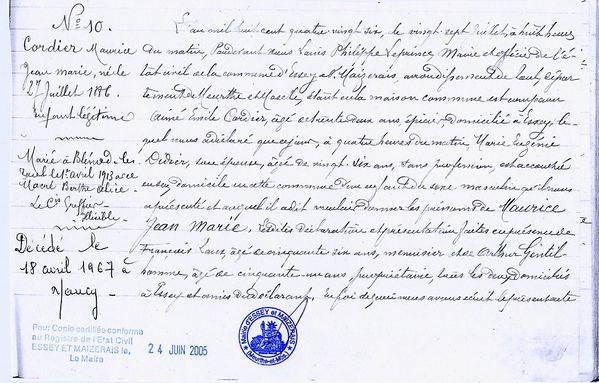 No 10.
Cordier Maurice
Jean marie, né le
27 Juillet 1886
Enfant légitime
Marié à Blénod-les
Toul le 1er avril 1913 avec
Berthe Alice
Le Cis Greffier
illisible
Décédé le
18 avril 1967 à
Nancy
L'an mil huit cent quatre vingt six, le vingt sept Juillet, à huit heures
du matin, Pardevant nous Louis Philippe Leprince, Maire et officier de l'é-
tat civil de la commune d'Essey et Maizerais, arrondissement de Toul, dépar
tement de Meurthe et Moselle, étant en la maison commune est comparu
Aimé Emile Cordier, âgé de trente deux ans, épicier domicilié à Essey, le-
quel nous a déclaré que ce jour, à quatre heures du matin, Marie Eugénie
Didier, son épouse, âgée de vingt-six ans, sans profession, est accouchée
en son domicile en cette commune d'un enfant du sexe masculin qu'il nous
a présenté et auquel il a dit vouloir donner les prénoms de Maurice
Jean Marie. Lesdites déclaration et présentation faites en présence de
François, âgé de cinquante six ans, menuisier et de Arthur Gentil-
homme, âgé de cinquante-un ans, propriétaire, tous les deux domiciliés
à Essey et amis du déclarant. En foi de quoi nous avons écrit le présent acte
Pour Copie certifiée conforme
au Registre de l'Etat Civil
ESSEY ET MAIZERAIS le,
Le Maire
24 JUIN 2005
Mairie d'ESSEY ET MAIZERAIS
(Meurthe-et-Mlle)